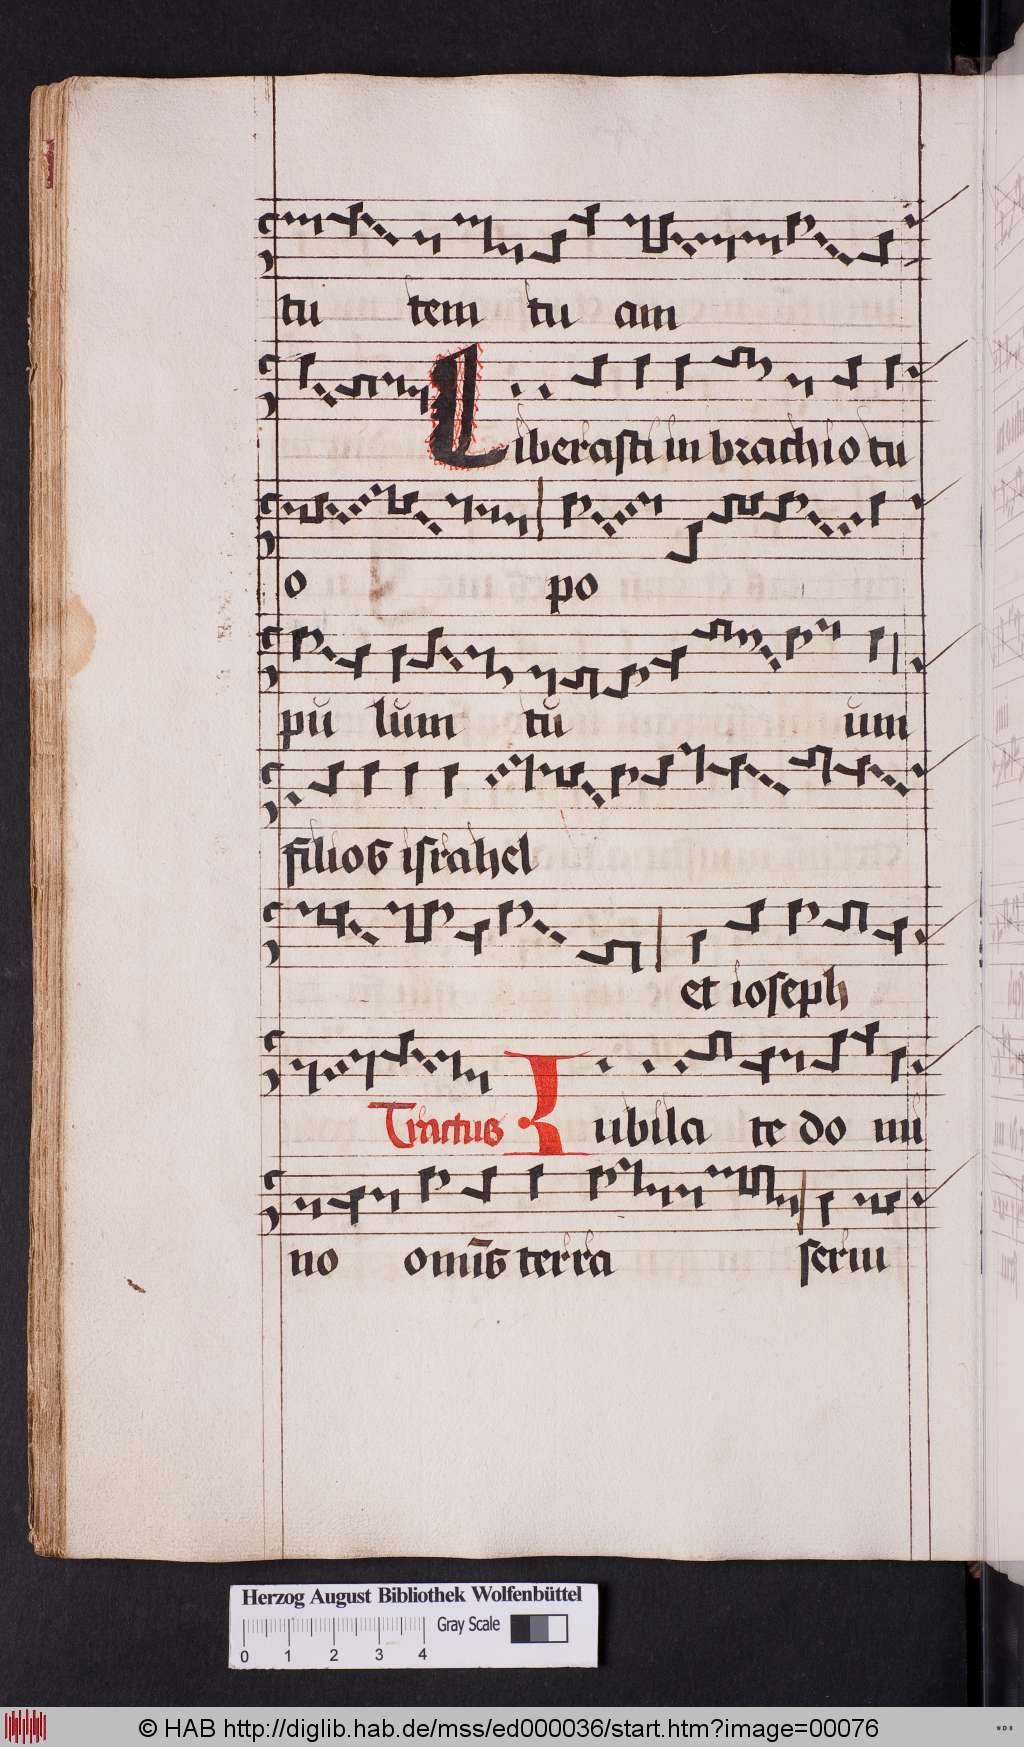 tu tem tu am
Liberasti in brachio tu
o po
pŭ lŭm tŭ ŭm
filios israhel
et ioseph
Tractus Iubila te do mi
no om̄is terra serui
Herzog August Bibliothek Wolfenbüttel
Gray Scale
0 1 2 3 4
© HAB http://diglib.hab.de/mss/ed000036/start.htm?image=00076